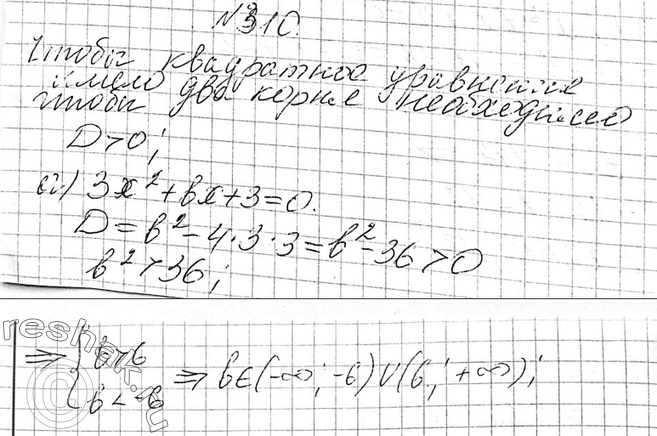 №310.
Чтобы квадратное уравнение
имело два корня необходимо
чтобы
D>0;
а) 3x²+bx+3=0.
D=b²-4·3·3=b²-36>0
b²>36;
reshak.ru
⇒ { b>6
b<-6 ⇒ b∈(-∞; -6)∪(6; +∞);